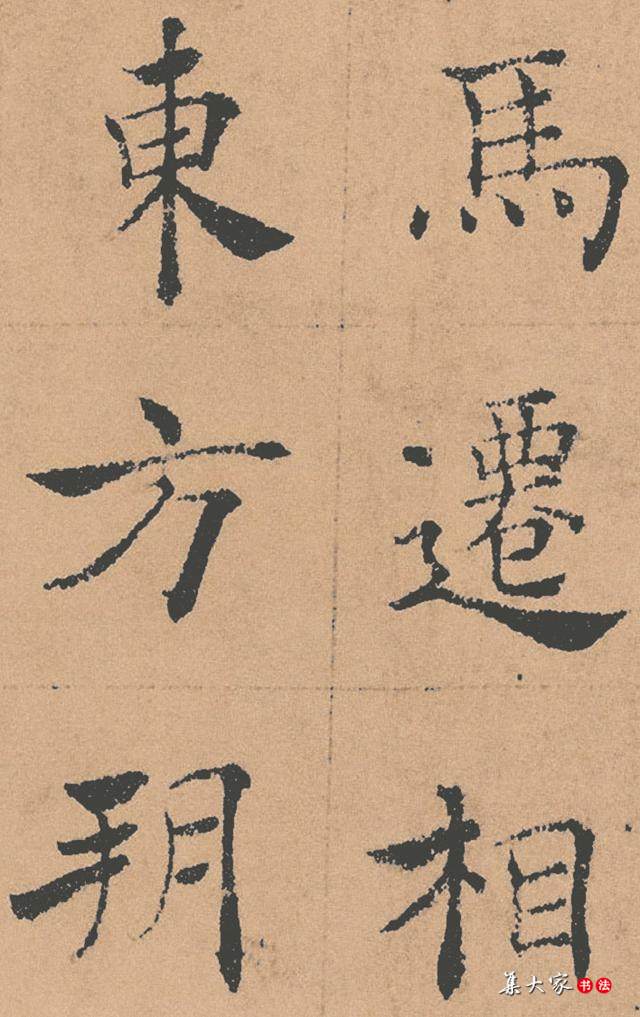 馬遷相
東方朔
集大家书法